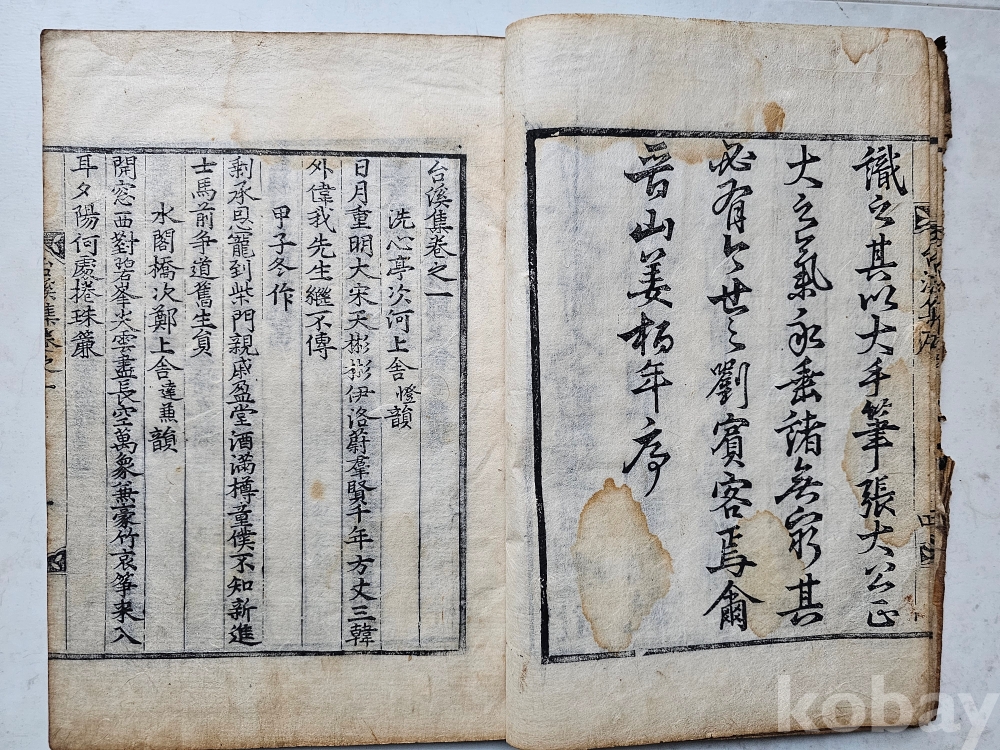 識之其以大手筆張大公正
大之氣永垂諸無窮其
必有今世之劉賓客焉爾
晉山姜柄年序
台溪集卷之一
洗心亭次河上舍燈韻
日月重明大宋天彬彬伊洛蔚羣賢千年方丈三韓
外偉我先生繼不傳
甲子冬作
剩承恩寵到柴門親戚盈堂酒滿樽童僕不知新進
士馬前爭道舊生員
水閣橋次鄭上舍達熏韻
開窓西對碧峯尖雲盡長空萬象兼豪竹哀箏來入
耳夕陽何處捲珠簾
台溪集卷之一
kobay